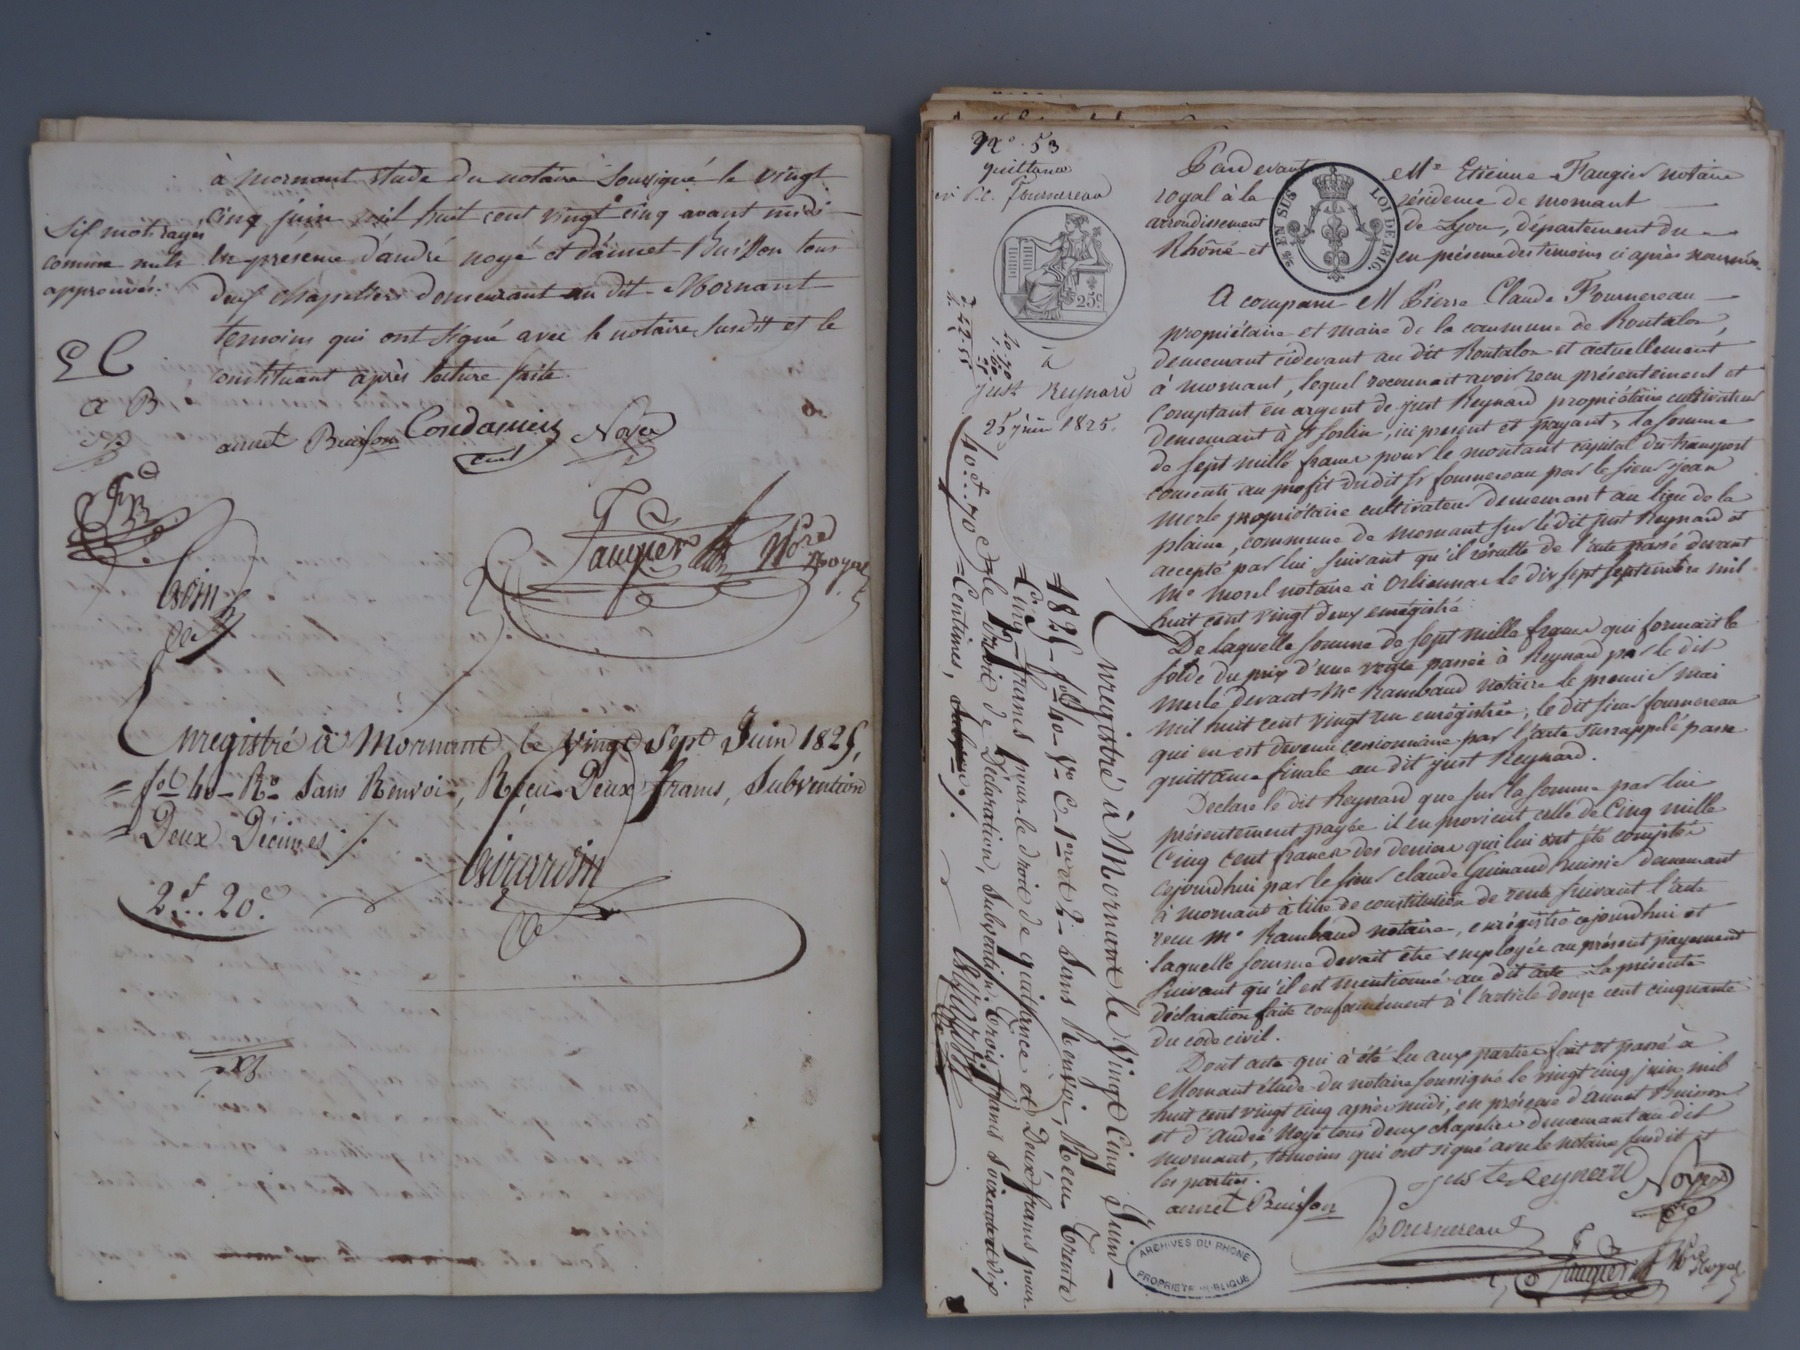 à mornant étude du notaire soussigné le vingt
cinq juin mil huit cent vingt cinq avant midi
En présence d'andré noyé et d'aimet Buisson tous
deux chapeliers demeurant au dit Mornant
temoins qui ont signé avec le notaire susdit et le
constituant après lecture faite.
Six mots rayés
comme nuls
approuvés.
a B
aimet Buisson Condamin Noyer
Faugier Nore Royal
Enregistré à Mornant, le vingt Sept Juin 1825,
fol 40 Ro Sans Renvoi, Reçu Deux francs, Subvention
Deux Décimes
2f. 20c
Girardin
No 53
quittance
Fournereau
25c
à
Just Reynard
25 juin 1825.
EN SUS
LOI DE 1816.
Pardevant Me Etienne Faugier notaire
royal à la résidence de mornant
arrondissement de Lyon, département du
Rhône et en présence des temoins ci après nommés
A comparu M Pierre Claude Fournereau
propriétaire et maire de la commune de Rontalon,
demeurant cidevant au dit Rontalon et actuellement
à mornant, lequel reconnait avoir reçu présentement et
comptant en argent de just Reynard propriétaire cultivateur
demeurant à st sorlin, ici present et payant, la somme
de sept mille francs pour le montant capital du transport
consenti au profit dudit sr fournereau par le sieur Jean
Merle propriétaire cultivateur demeurant au lieu de la
plaine, commune de Mornant sur le dit just Reynard et
accepté par lui suivant qu'il résulte de l'acte passé devant
Me Morel notaire à Orliennas le dix sept septembre mil
huit cent vingt deux enregistré
De laquelle somme de sept mille francs qui formait le
solde du prix d'une vente passée à Reynard par le dit
merle devant Me Rambaud notaire le premier mai
mil huit cent vingt un enregistrée; le dit sieur fournereau
qui en est devenu cessionnaire par l'acte susrappelé passe
quittance finale au dit just Reynard.
Declare le dit Reynard que sur la somme par lui
présentement payée il en provient celle de Cinq mille
Cinq cent francs des deniers qui lui ont été comptés
cejourdhui par le sieur claude Guinand demeurant
à mornant à titre de constitution de rente suivant l'acte
reçu Me Rambaud notaire, enregistré cejourdhui et
laquelle somme devait être employée au présent payement
suivant qu'il est mentionné au dit acte. La présente
déclaration faite conformément à l'article douze cent cinquante
du code civil.
Dont acte qui à été lu aux parties fait et passé à
Mornant étude du notaire soussigné le vingt cinq juin mil
huit cent vingt cinq après midi, en présence d'aimet Buisson
et d'André Noyé tous deux chapeliers demeurant au dit
mornant, témoins qui ont signé avec le notaire susdit et
les parties.
aimet Buisson juste Reynard Noyer
Fournereau
Faugier Nre Royal
Enregistré à Mornant le Vingt Cinq Juin
1825 fol 40 Vo C 1re et 2 Sans Renvoi, Reçu Trente
Cinq francs pour le droit de quittance et Deux francs pour
le Droit de Déclaration, Subvention Trois francs Soixante dix
Centimes,
40f..70c
Girardin
ARCHIVES DU RHONE
PROPRIÉTÉ PUBLIQUE